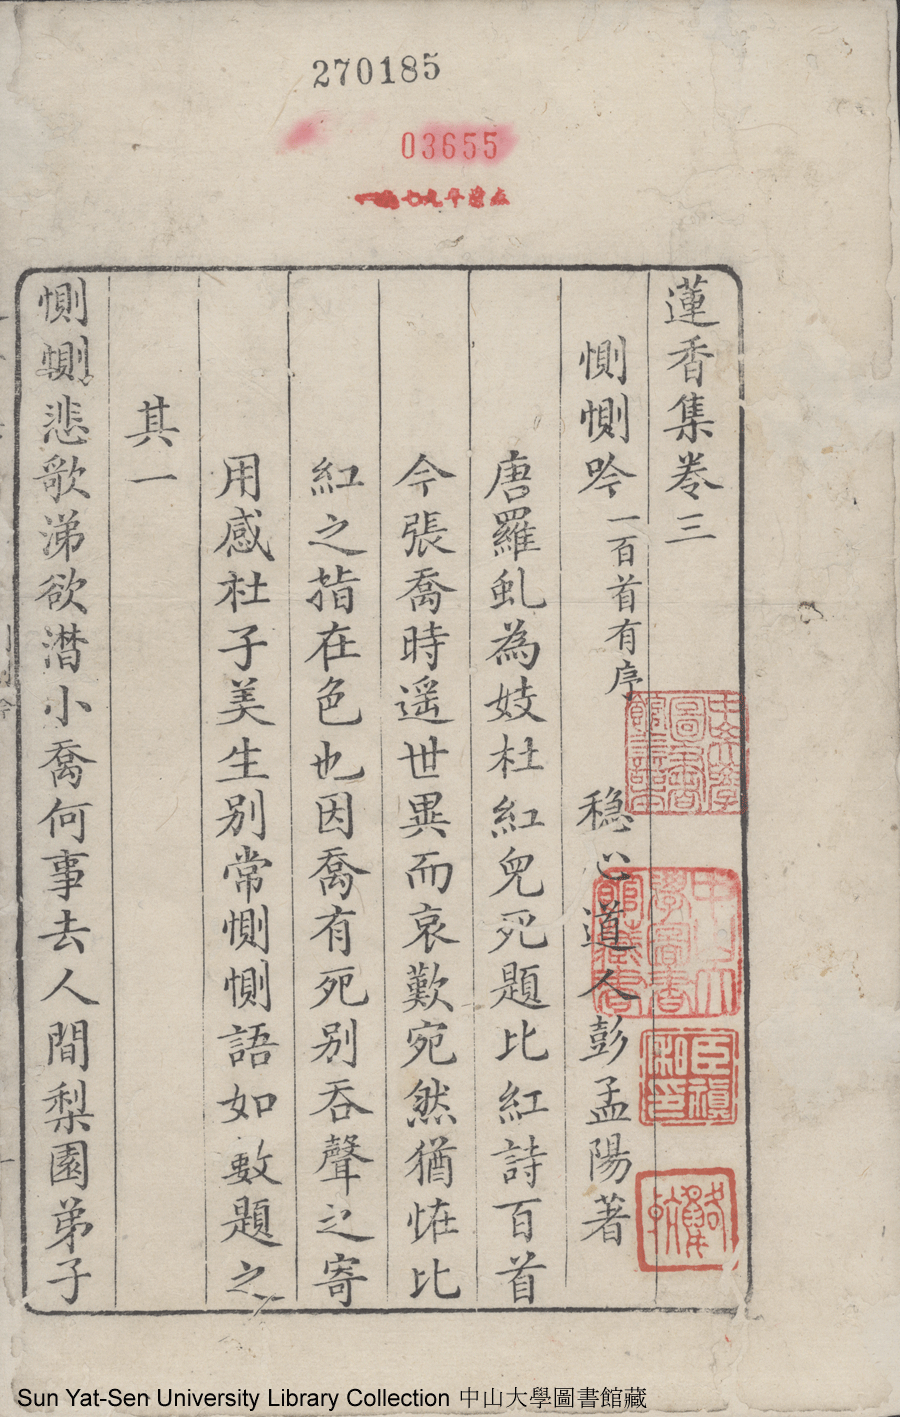 270185
03655
蓮香集卷三
惻惻吟一百首有序 穏心道人彭孟陽著
唐羅虬為妓杜紅兒死題比紅詩百首
今張喬時遥世異而哀歎宛然猶恠比
紅之指在色也因喬有死别吞聲之寄
用感杜子美生别常惻惻語如數題之
其一
惻惻悲歌涕欲潸小喬何事去人間梨園弟子
Sun Yat-Sen University Library Collection 中山大學圖書館藏